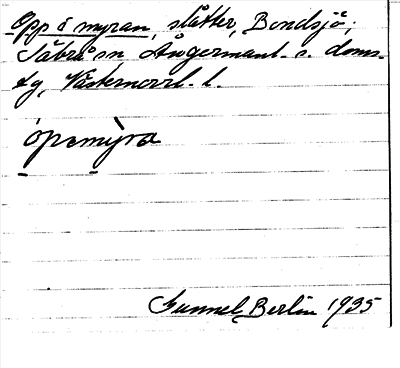 Opp å myran, slåtter, Bondsjö;
Säbrå sn Ångermanl. s. doms-
sg, Västernorrl. l.
òpεmỳra
Gunnel Berlin 1935